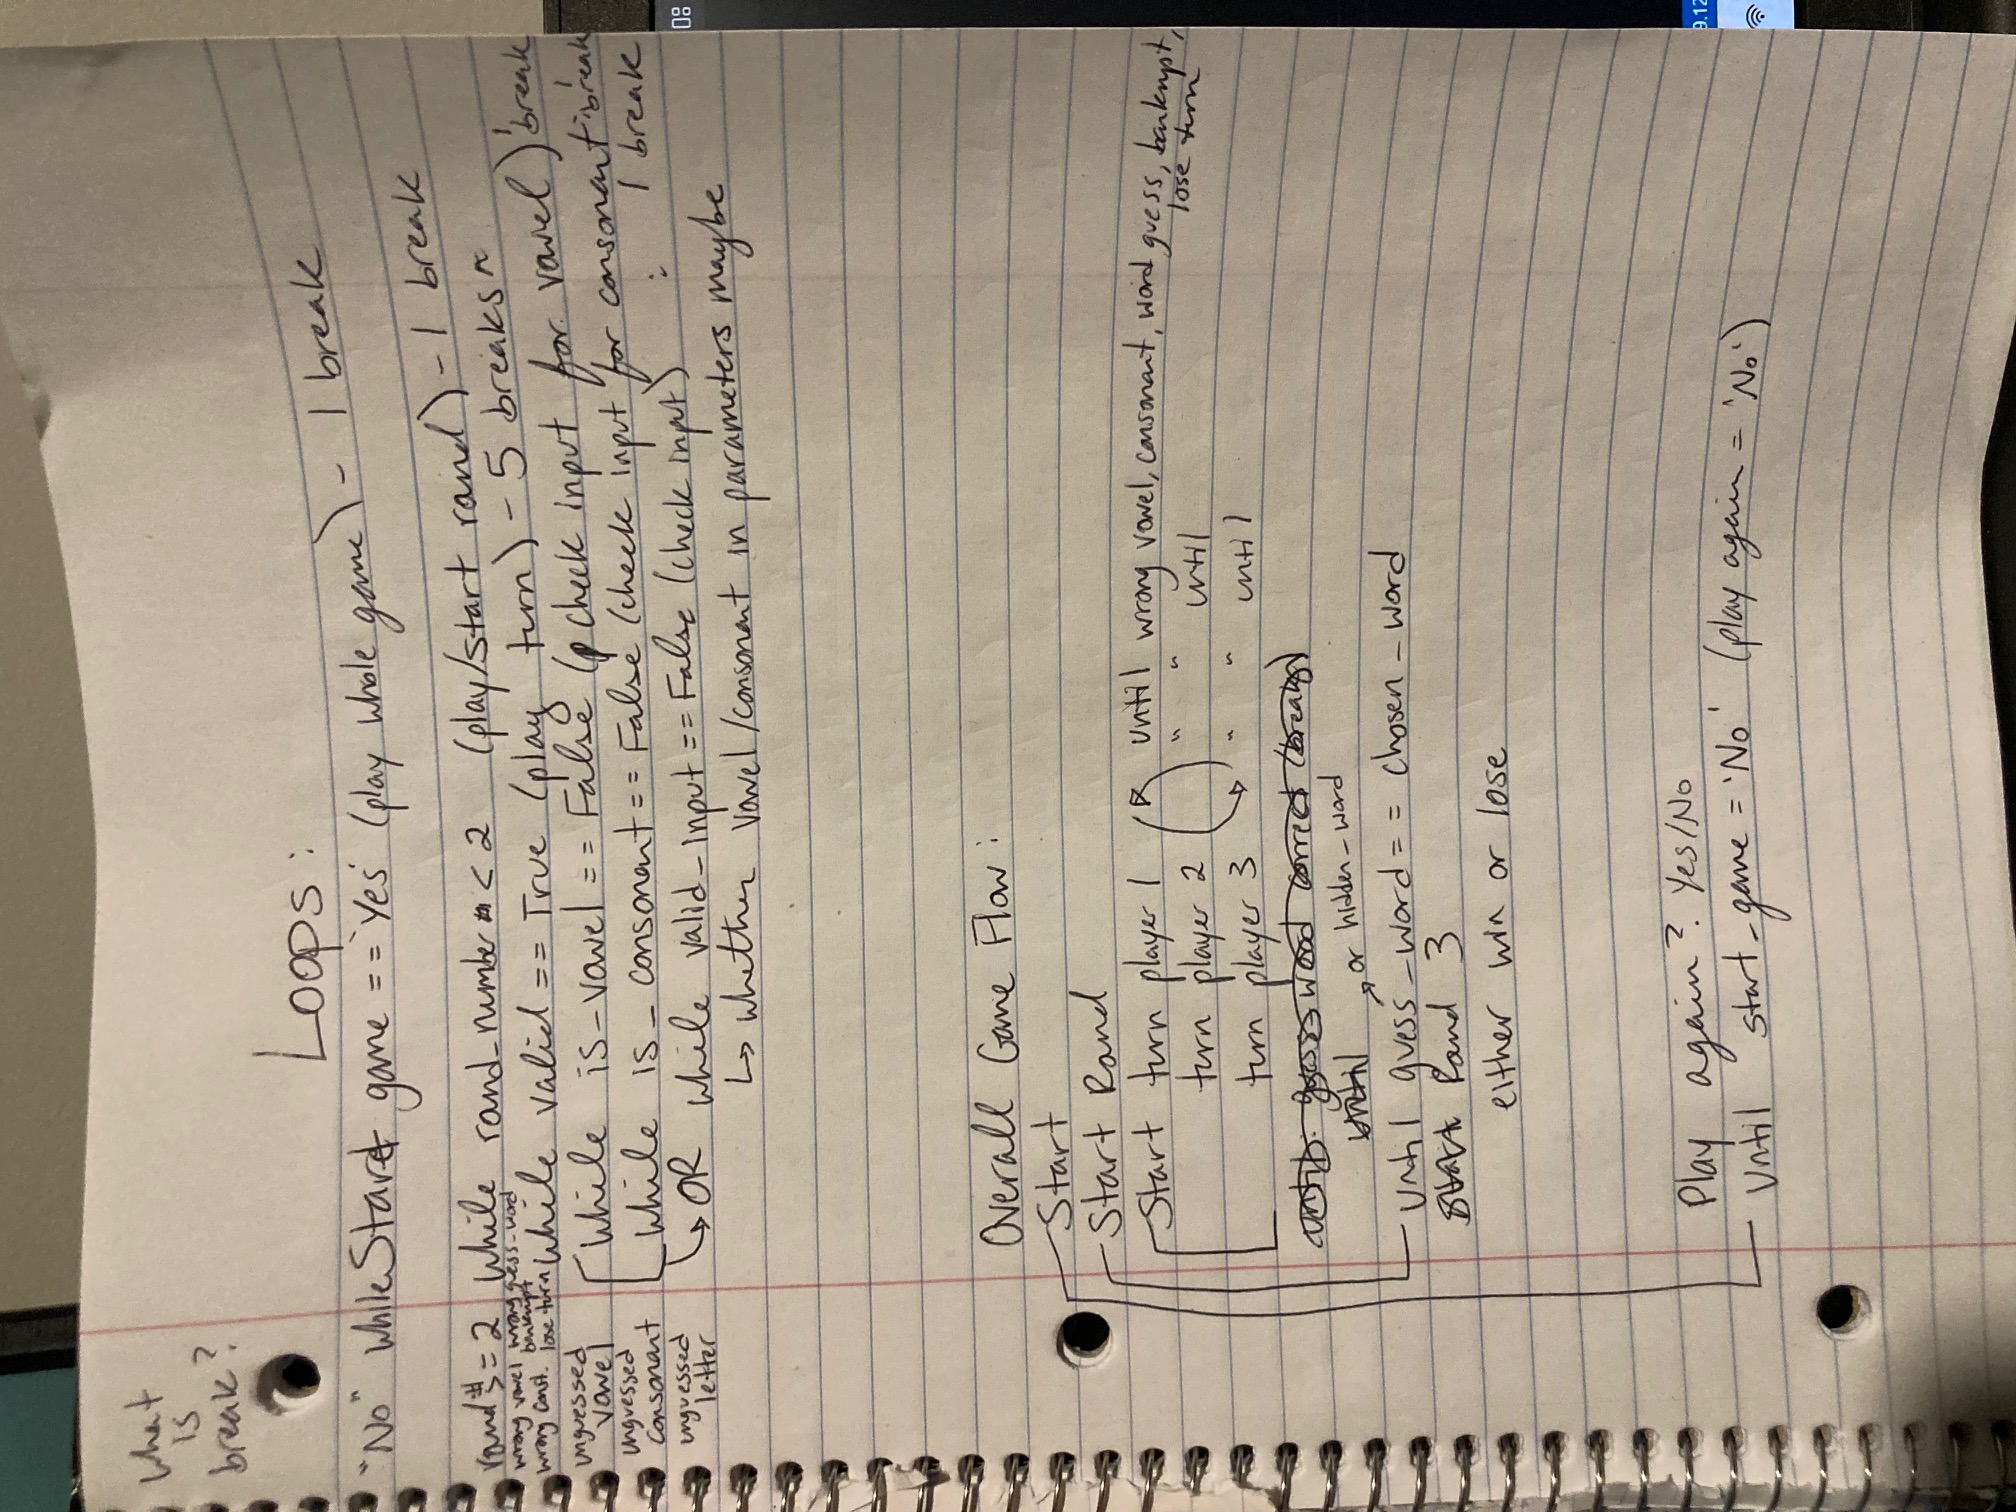 What
is
break?
Loops:
"No" while Start game == 'Yes' (play whole game) - 1 break
round # >= 2 while round_number < 2 (play/start round) - 1 break
wrong vowel wrong guess-word
wrong const. bankrupt
lose turn
while valid == True (play turn) - 5 breaks
unguessed
vowel
while is_vowel == False (check input for vowel) 1 break
unguessed
consonant
while is_consonant == False (check input for consonant) 1 break
unguessed
letter
↳ OR while valid_input == False (check input) : 1 break
↳ whether vowel/consonant in parameters maybe
Overall Game Flow:
Start
Start Round
Start turn player 1 until wrong vowel, consonant, word guess, bankrupt,
lose turn
turn player 2 " " until
turn player 3 " " until
until guess word correct (breaks)
until → or hidden_word
until guess_word == chosen_word
Start Round 3
either win or lose
Play again? Yes/No
Until start_game = 'No' (play again = 'No')
08
9.12